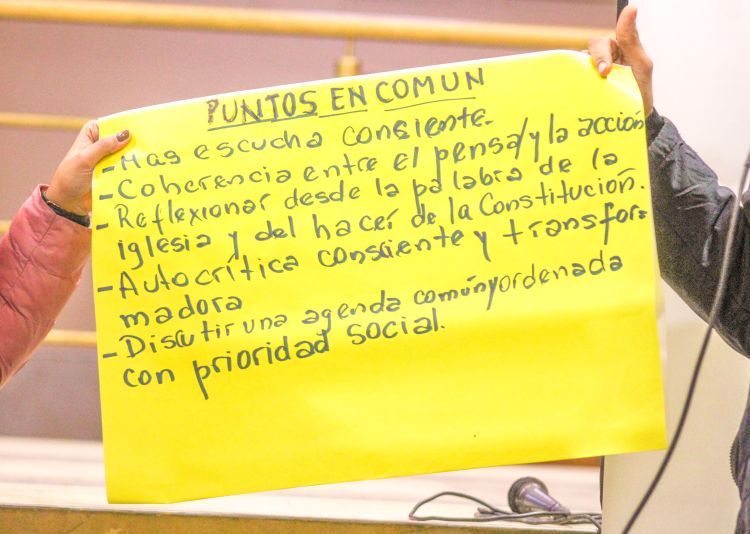 PUNTOS EN COMUN
- Mas escucha consiente.
- Coherencia entre el pensa/ y la acción
- Reflexionar desde la palabra de la
iglesia y del hacer de la Constitución.
- Autocrítica consciente y transfor=
madora
- Discutir una agenda común y ordenada
con prioridad social.